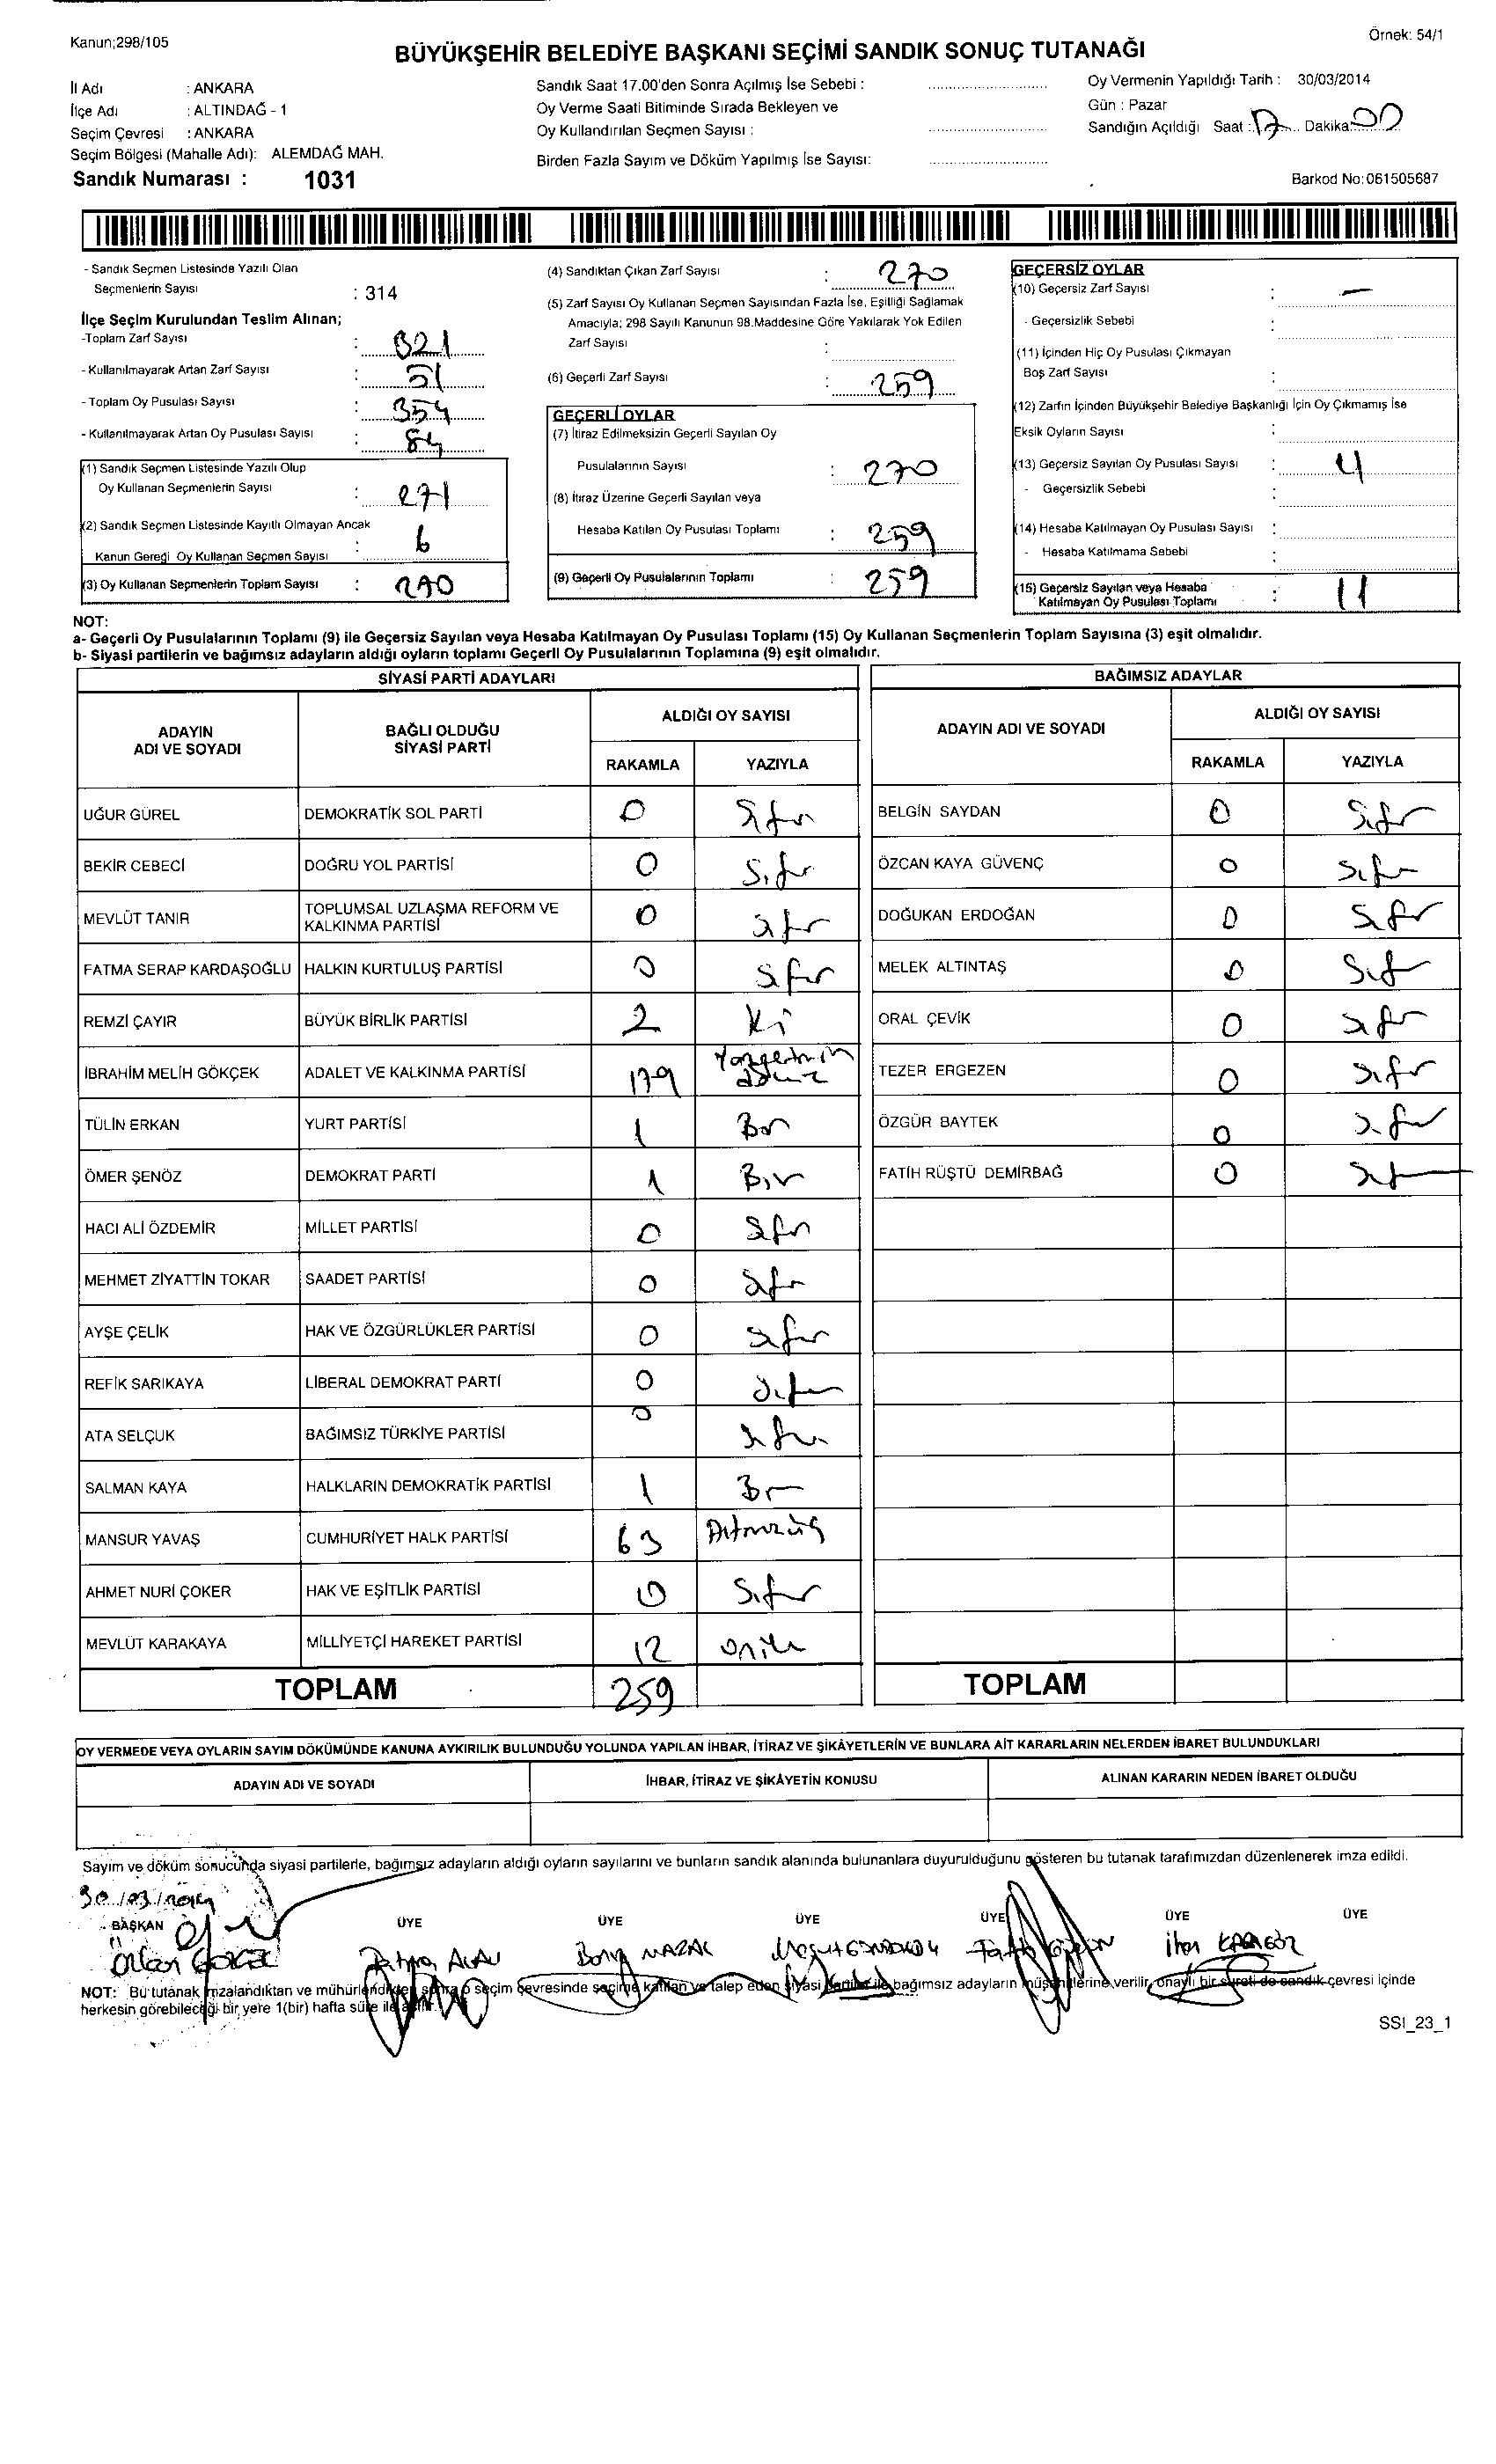 Kanun;298/105
Örnek: 54/1
BÜYÜKŞEHİR BELEDİYE BAŞKANI SEÇİMİ SANDIK SONUÇ TUTANAĞI
İl Adı : ANKARA
İlçe Adı : ALTINDAĞ - 1
Seçim Çevresi : ANKARA
Seçim Bölgesi (Mahalle Adı): ALEMDAĞ MAH.
Sandık Numarası : 1031
Sandık Saat 17.00'den Sonra Açılmış İse Sebebi :
Oy Verme Saati Bitiminde Sırada Bekleyen ve
Oy Kullandırılan Seçmen Sayısı :
Birden Fazla Sayım ve Döküm Yapılmış İse Sayısı:
Oy Vermenin Yapıldığı Tarih : 30/03/2014
Gün : Pazar
Sandığın Açıldığı Saat : 17 Dakika 00
Barkod No:061505687
- Sandık Seçmen Listesinde Yazılı Olan
Seçmenlerin Sayısı : 314
İlçe Seçim Kurulundan Teslim Alınan;
-Toplam Zarf Sayısı : 321
- Kullanılmayarak Artan Zarf Sayısı : 51
- Toplam Oy Pusulası Sayısı : 354
- Kullanılmayarak Artan Oy Pusulası Sayısı : 84
(1) Sandık Seçmen Listesinde Yazılı Olup
Oy Kullanan Seçmenlerin Sayısı : 271
(2) Sandık Seçmen Listesinde Kayıtlı Olmayan Ancak
Kanun Gereği Oy Kullanan Seçmen Sayısı : 6
(3) Oy Kullanan Seçmenlerin Toplam Sayısı : 270
(4) Sandıktan Çıkan Zarf Sayısı : 270
(5) Zarf Sayısı Oy Kullanan Seçmen Sayısından Fazla İse, Eşitliği Sağlamak
Amacıyla; 298 Sayılı Kanunun 98.Maddesine Göre Yakılarak Yok Edilen
Zarf Sayısı :
(6) Geçerli Zarf Sayısı : 259
GEÇERLİ OYLAR
(7) İtiraz Edilmeksizin Geçerli Sayılan Oy
Pusulalarının Sayısı : 270
(8) İtiraz Üzerine Geçerli Sayılan veya
Hesaba Katılan Oy Pusulası Toplamı : 259
(9) Geçerli Oy Pusulalarının Toplamı : 259
GEÇERSİZ OYLAR
(10) Geçersiz Zarf Sayısı : -
- Geçersizlik Sebebi :
(11) İçinden Hiç Oy Pusulası Çıkmayan
Boş Zarf Sayısı :
(12) Zarfın İçinden Büyükşehir Belediye Başkanlığı İçin Oy Çıkmamış İse
Eksik Oyların Sayısı :
(13) Geçersiz Sayılan Oy Pusulası Sayısı : 4
- Geçersizlik Sebebi :
(14) Hesaba Katılmayan Oy Pusulası Sayısı :
- Hesaba Katılmama Sebebi :
(15) Geçersiz Sayılan veya Hesaba
Katılmayan Oy Pusulası Toplamı : 11
NOT:
a- Geçerli Oy Pusulalarının Toplamı (9) ile Geçersiz Sayılan veya Hesaba Katılmayan Oy Pusulası Toplamı (15) Oy Kullanan Seçmenlerin Toplam Sayısına (3) eşit olmalıdır.
b- Siyasi partilerin ve bağımsız adayların aldığı oyların toplamı Geçerli Oy Pusulalarının Toplamına (9) eşit olmalıdır.
SİYASİ PARTİ ADAYLARI
ADAYIN ADI VE SOYADI BAĞLI OLDUĞU SİYASİ PARTİ ALDIĞI OY SAYISI
RAKAMLA YAZIYLA
UĞUR GÜREL DEMOKRATİK SOL PARTİ 0 Sıfır
BEKİR CEBECİ DOĞRU YOL PARTİSİ 0 Sıfır
MEVLÜT TANIR TOPLUMSAL UZLAŞMA REFORM VE KALKINMA PARTİSİ 0 Sıfır
FATMA SERAP KARDAŞOĞLU HALKIN KURTULUŞ PARTİSİ 0 Sıfır
REMZİ ÇAYIR BÜYÜK BİRLİK PARTİSİ 2 İki
İBRAHİM MELİH GÖKÇEK ADALET VE KALKINMA PARTİSİ 179
TÜLİN ERKAN YURT PARTİSİ 1 Bir
ÖMER ŞENÖZ DEMOKRAT PARTİ 1 Bir
HACI ALİ ÖZDEMİR MİLLET PARTİSİ 0 Sıfır
MEHMET ZİYATTİN TOKAR SAADET PARTİSİ 0 Sıfır
AYŞE ÇELİK HAK VE ÖZGÜRLÜKLER PARTİSİ 0 Sıfır
REFİK SARIKAYA LİBERAL DEMOKRAT PARTİ 0 Sıfır
ATA SELÇUK BAĞIMSIZ TÜRKİYE PARTİSİ 0 Sıfır
SALMAN KAYA HALKLARIN DEMOKRATİK PARTİSİ 1 Bir
MANSUR YAVAŞ CUMHURİYET HALK PARTİSİ 63 Altmışüç
AHMET NURİ ÇOKER HAK VE EŞİTLİK PARTİSİ 0 Sıfır
MEVLÜT KARAKAYA MİLLİYETÇİ HAREKET PARTİSİ 12 oniki
TOPLAM 259
BAĞIMSIZ ADAYLAR
ADAYIN ADI VE SOYADI ALDIĞI OY SAYISI
RAKAMLA YAZIYLA
BELGİN SAYDAN 0 Sıfır
ÖZCAN KAYA GÜVENÇ 0 Sıfır
DOĞUKAN ERDOĞAN 0 Sıfır
MELEK ALTINTAŞ 0 Sıfır
ORAL ÇEVİK 0 Sıfır
TEZER ERGEZEN 0 Sıfır
ÖZGÜR BAYTEK 0 Sıfır
FATİH RÜŞTÜ DEMİRBAĞ 0 Sıfır
TOPLAM
OY VERMEDE VEYA OYLARIN SAYIM DÖKÜMÜNDE KANUNA AYKIRILIK BULUNDUĞU YOLUNDA YAPILAN İHBAR, İTİRAZ VE ŞİKÂYETLERİN VE BUNLARA AİT KARARLARIN NELERDEN İBARET BULUNDUKLARI
ADAYIN ADI VE SOYADI İHBAR, İTİRAZ VE ŞİKÂYETİN KONUSU ALINAN KARARIN NEDEN İBARET OLDUĞU
Sayım ve döküm sonucunda siyasi partilerle, bağımsız adayların aldığı oyların sayılarını ve bunların sandık alanında bulunanlara duyurulduğunu gösteren bu tutanak tarafımızdan düzenlenerek imza edildi.
30/03/2014
BAŞKAN ÜYE ÜYE ÜYE ÜYE ÜYE ÜYE
NOT: Bu tutanak imzalandıktan ve mühürlendikten sonra o seçim çevresinde seçime katılan ve talep eden siyasi partiler ile bağımsız adayların müşahitlerine verilir, onaylı bir sureti de sandık çevresi içinde
herkesin görebileceği bir yere 1(bir) hafta süre ile asılır.
SSI_23_1